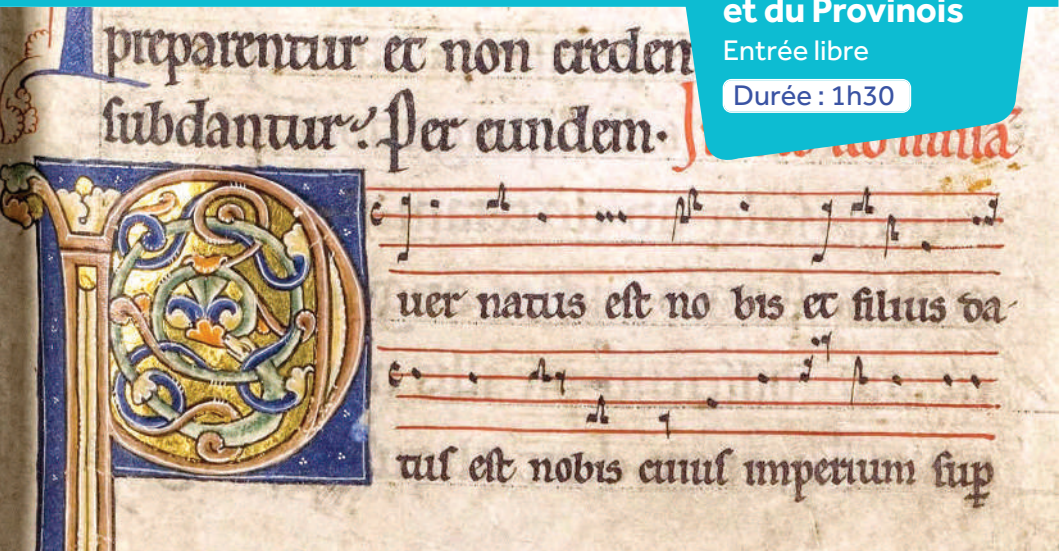 et du Provinois
Entrée libre
Durée : 1h30
preparentur et non creden
subdantur. Per eundem.
Puer natus est no bis et filius da-
tus est nobis cuius imperium sup